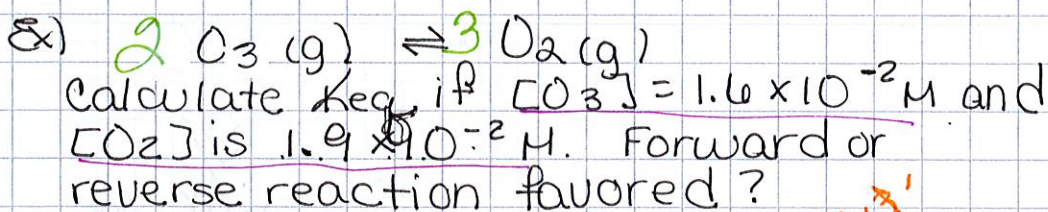 Ex) 2 O3 (g) ⇌ 3 O2 (g)
Calculate Keq, if [O3] = 1.6 x 10⁻² M and
[O2] is 1.9 x 10⁻² M. Forward or
reverse reaction favored?